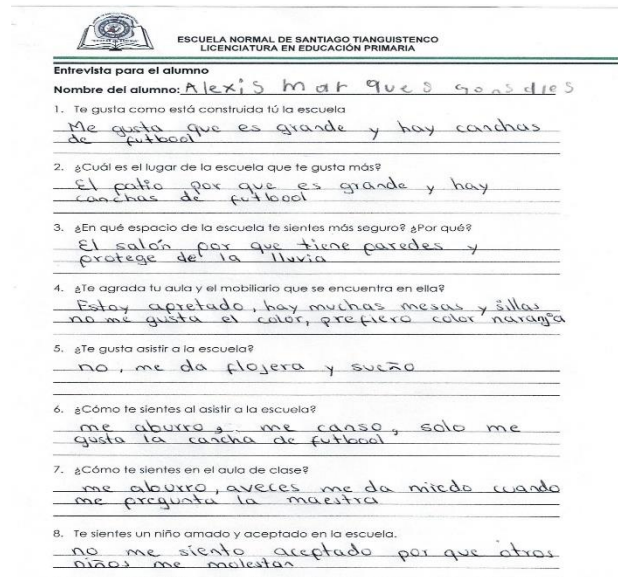 ESCUELA NORMAL DE SANTIAGO TIANGUISTENCO
LICENCIATURA EN EDUCACIÓN PRIMARIA
Entrevista para el alumno
Nombre del alumno: Alexis marques gonsales
1. Te gusta como está construida tú la escuela
Me gusta que es grande y hay canchas
de futbool
2. ¿Cuál es el lugar de la escuela que te gusta más?
El patio por que es grande y hay
canchas de futbool
3. ¿En qué espacio de la escuela te sientes más seguro? ¿Por qué?
El salón por que tiene paredes y
protege de la lluvia
4. ¿Te agrada tu aula y el mobiliario que se encuentra en ella?
Estoy apretado, hay muchas mesas y sillas
no me gusta el color, prefiero color naranja
5. ¿Te gusta asistir a la escuela?
no, me da flojera y sueño
6. ¿Cómo te sientes al asistir a la escuela?
me aburro, me canso, solo me
gusta la cancha de futbool
7. ¿Cómo te sientes en el aula de clase?
me aburro, aveces me da miedo cuando
me pregunta la maestra
8. Te sientes un niño amado y aceptado en la escuela.
no me siento aceptado por que otros
niños me molestan